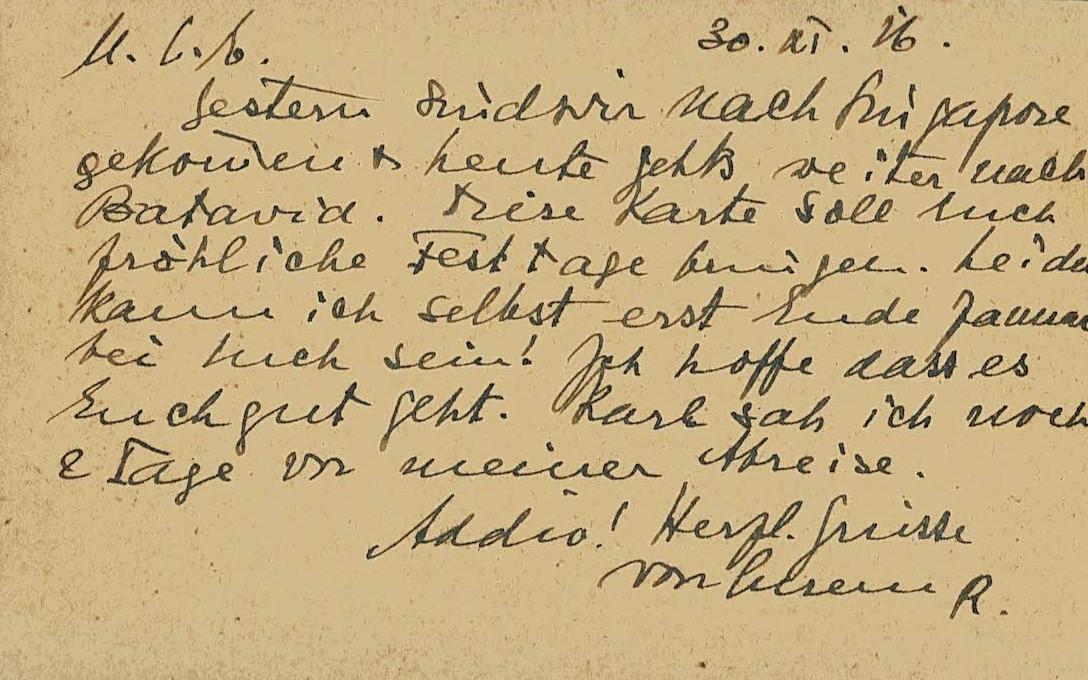 30. XI. 26.
Gestern sind wir nach Singapore
gekom̄en & heute gehts weiter nach
Batavia. Diese Karte soll Euch
fröhliche Festtage bringen. Leider
kann ich selbst erst Ende Januar
bei Euch sein! Ich hoffe dass es
Euch gut geht. Karl sah ich noch
2 Tage vor meiner Abreise.
Addio! Herzl. Grüsse
von Eurem R.